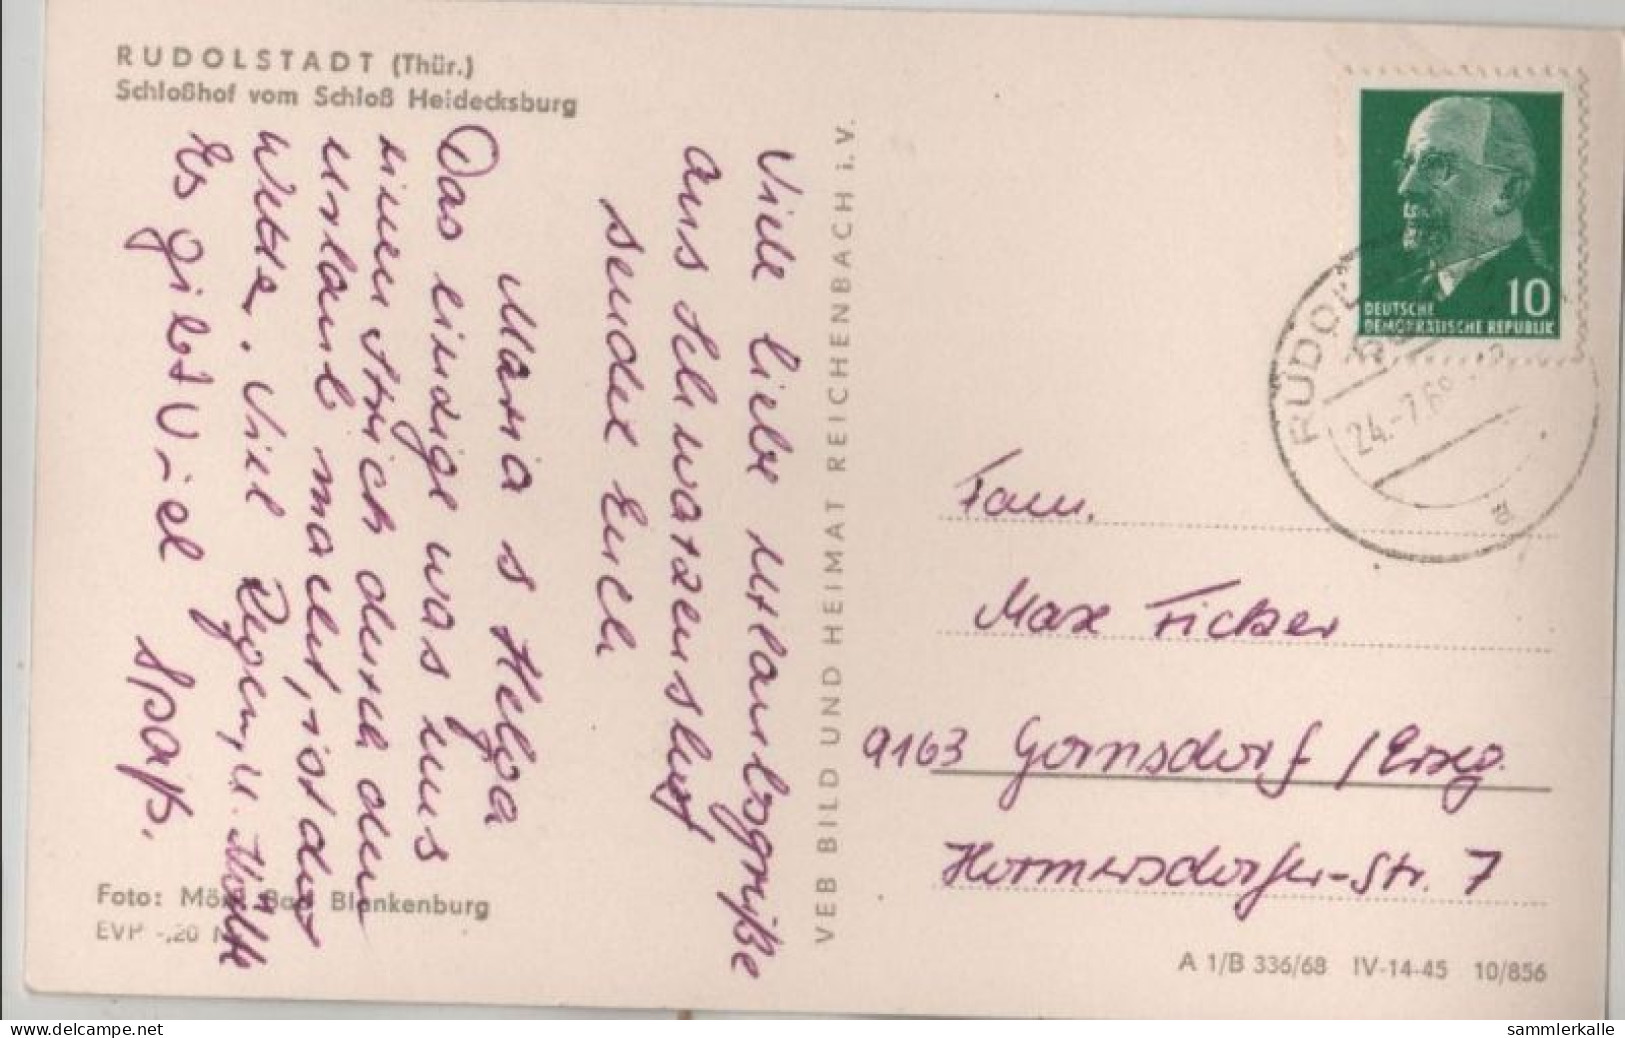 RUDOLSTADT (Thür.)
Schloßhof vom Schloß Heidecksburg
Viele liebe Urlaubsgrüße
aus Schwarzenshof
sendet Euch
Maria s Helga
Das einzige was uns
einen Strich durch den
Urlaub macht, ist das
Wetter. Viel Regen, u. Kälte
Es gibt viel Spaß.
Foto: Bad Blankenburg
EVP -,20
VEB BILD UND HEIMAT REICHENBACH i. V.
10
DEUTSCHE
DEMOKRATISCHE REPUBLIK
24.-7.68
a
Fam.
Max Ficker
9163 Gornsdorf /Erzg.
Hormersdorfer-Str. 7
A 1/B 336/68 IV-14-45 10/856
delcampe.net
sammlerkalle